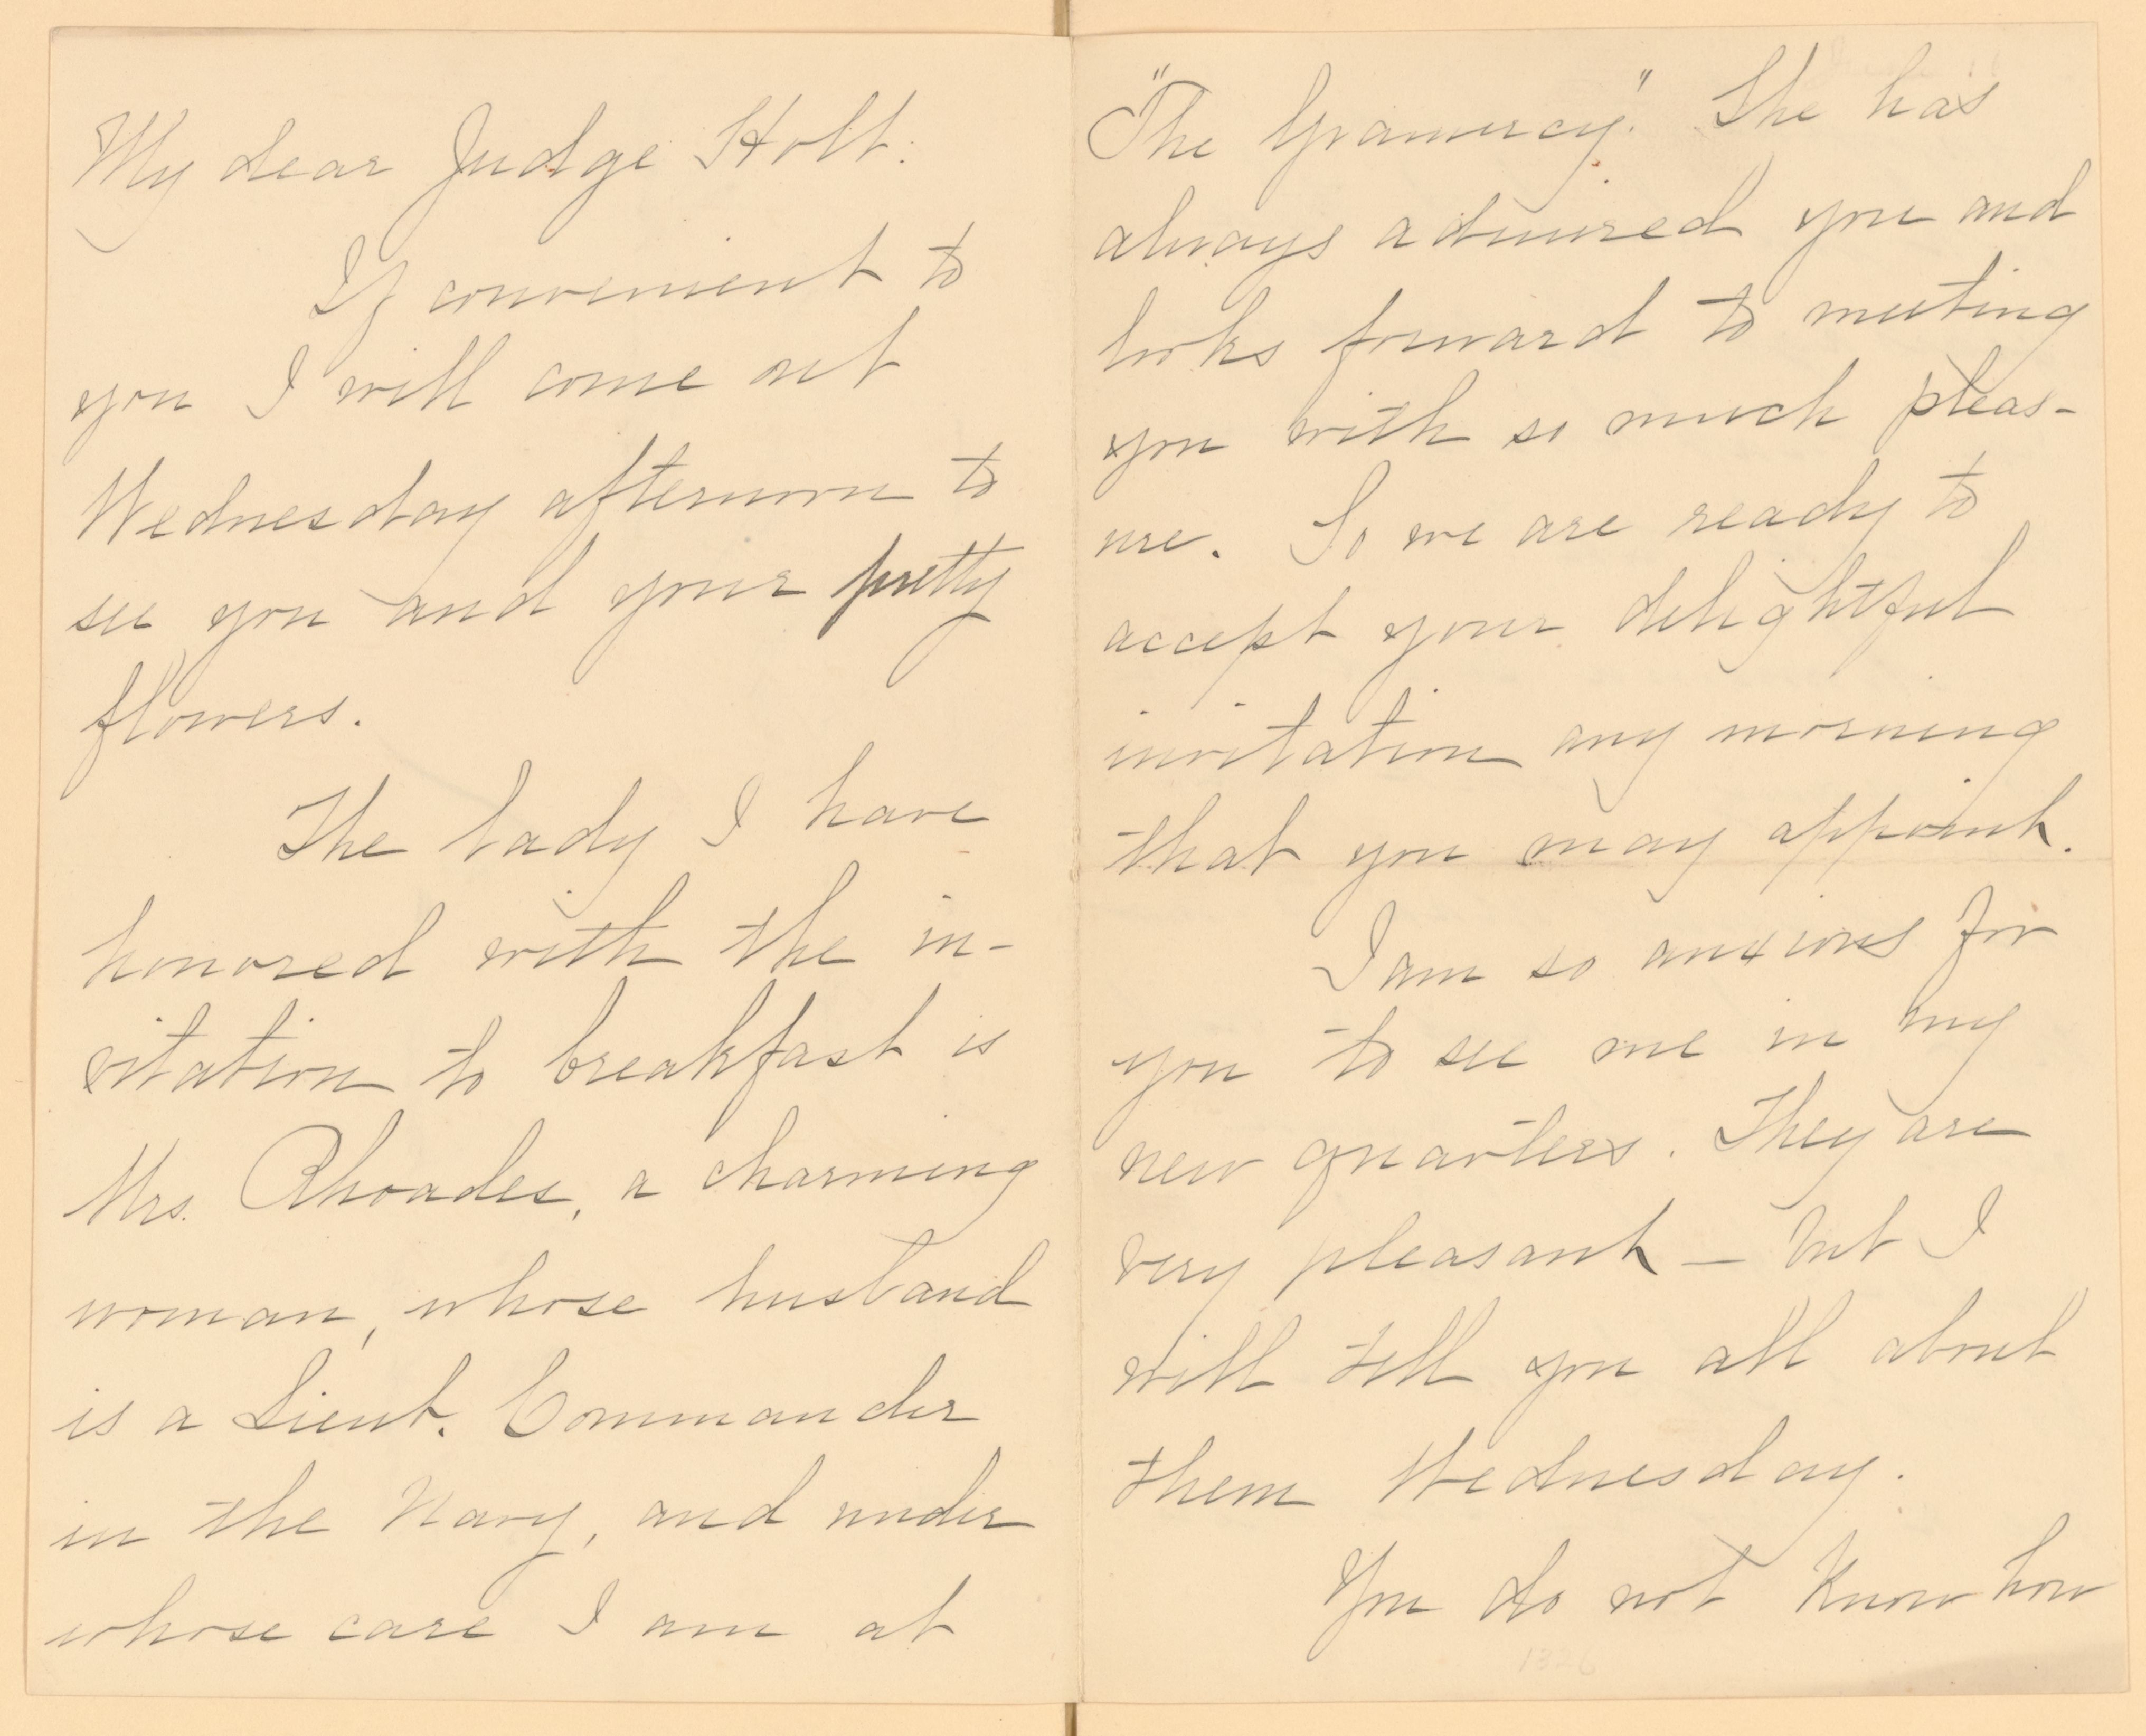 My dear Judge Holt:
If convenient to
you I will come out
Wednesday afternoon to
see you and your pretty
flowers.
The lady I have
honored with the in-
vitation to breakfast is
Mrs. Rhoades, a charming
woman, whose husband
is a Lieut. Commander
in the Navy, and under
whose care I am at
"The Gramercy." She has
always admired you and
looks forward to meeting
you with so much pleas-
ure. So we are ready to
accept your delightful
invitation any morning
that you may appoint.
I am so anxious for
you to see me in my
new quarters. They are
very pleasant – but I
will tell you all about
them Wednesday.
You do not know how
1326